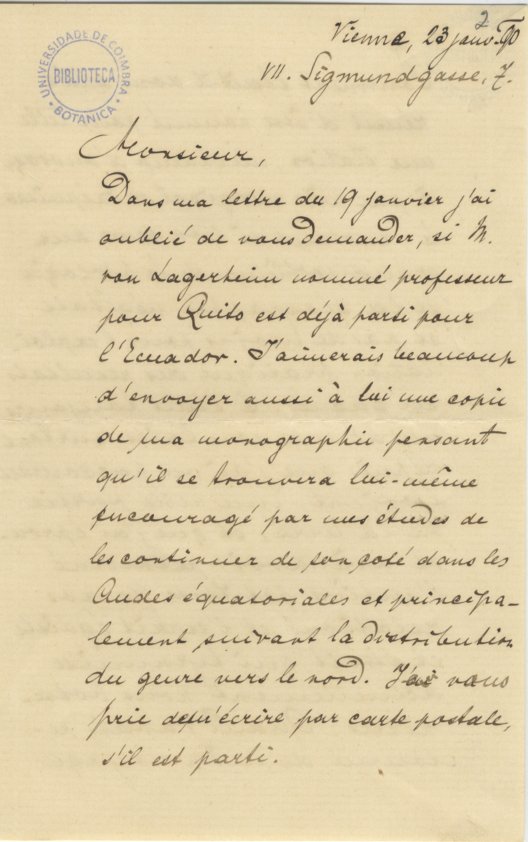 2
Vienne, 23 janv. 90
VII. Sigmundgasse, 7.
UNIVERSIDADE DE COIMBRA
BIBLIOTECA
BOTANICA
Monsieur,
Dans ma lettre du 19 janvier j'ai
oublié de vous demander, si M.
von Lagerheim nommé professeur
pour Quito est déjà parti pour
l'Ecuador. J'aimerais beaucoup
d'envoyer aussi à lui une copie
de ma monographie pensant
qu'il se trouvera lui-même
encouragé par mes études de
les continuer de son coté dans les
Andes équatoriales et principa-
lement suivant la distribution
du genre vers le nord. Je vous
prie de m'écrire par carte postale,
s'il est parti.